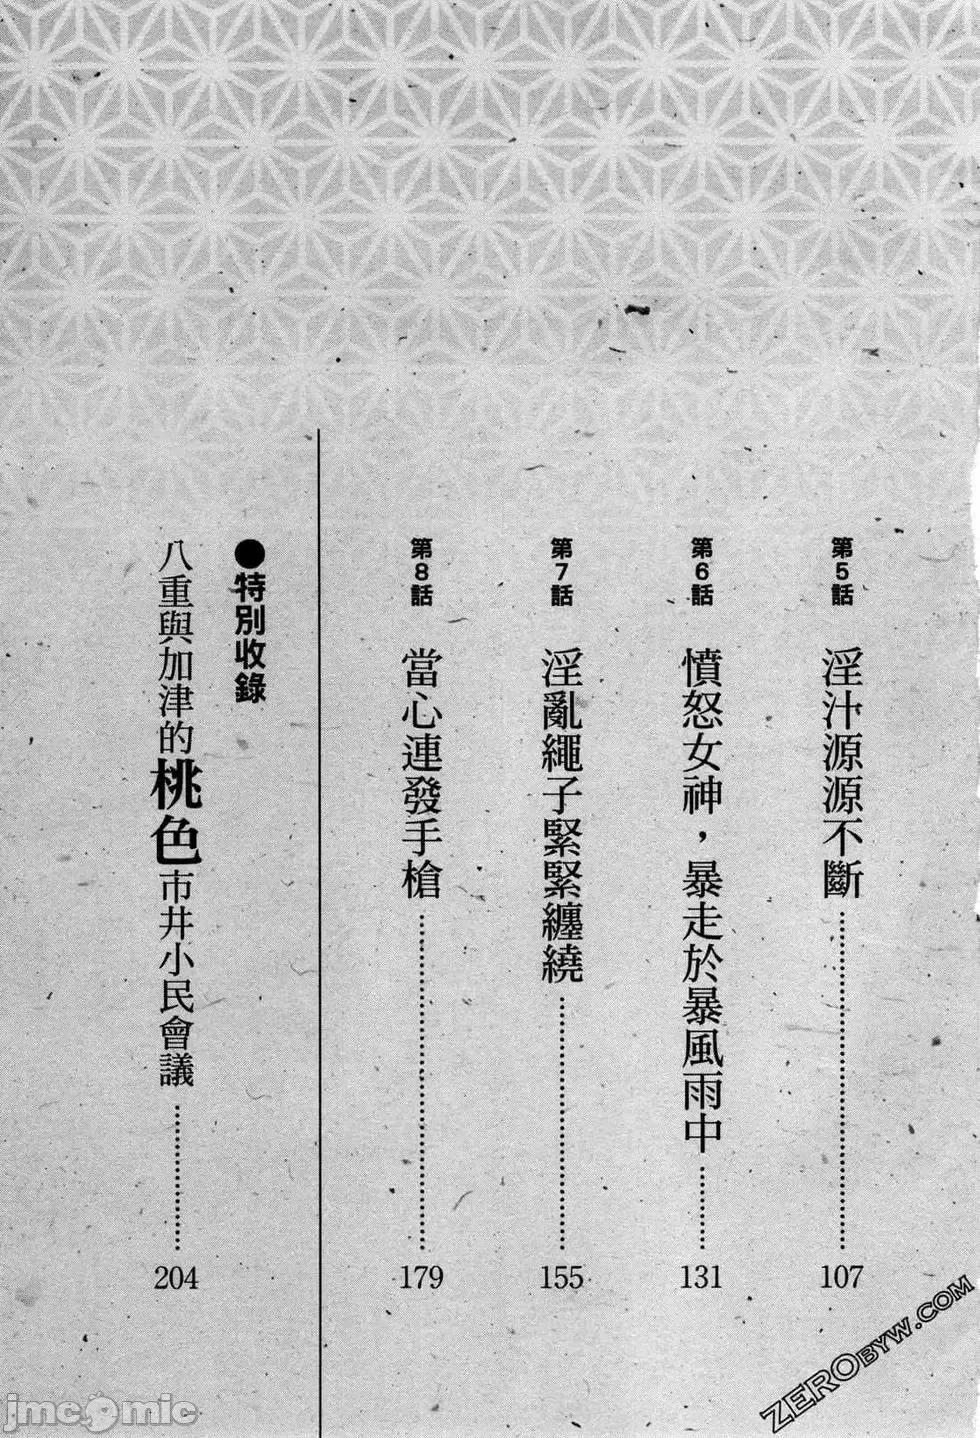 第5話 淫汁源源不斷 107
第6話 憤怒女神，暴走於暴風雨中 131
第7話 淫亂繩子緊緊纏繞 155
第8話 當心連發手槍 179
●特別收錄
八重與加津的桃色市井小民會議 204
ZEROBYW.COM
jmcomic